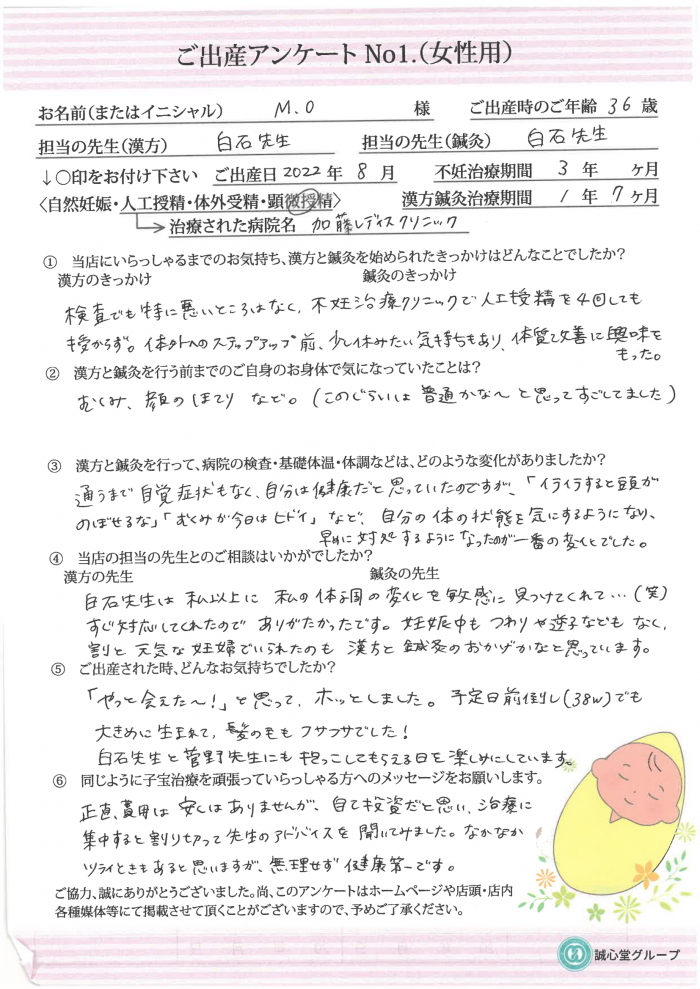 ご出産アンケート No1.(女性用)
お名前(またはイニシャル) M.O 様 ご出産時のご年齢 36 歳
担当の先生(漢方) 白石先生 担当の先生(鍼灸) 白石先生
↓〇印をお付け下さい ご出産日 2022 年 8 月 不妊治療期間 3 年 ヶ月
〈自然妊娠・人工授精・体外受精・顕微授精〉 漢方鍼灸治療期間 1 年 7 ヶ月
治療された病院名 加藤レディスクリニック
① 当店にいらっしゃるまでのお気持ち、漢方と鍼灸を始められたきっかけはどんなことでしたか?
漢方のきっかけ 鍼灸のきっかけ
検査でも特に悪いところはなく、不妊治療クリニックで人工授精を4回しても
授からず。体外へのステップアップ前、少し休みたい気持ちもあり、体質改善に興味を
もった。
② 漢方と鍼灸を行う前までのご自身のお身体で気になっていたことは?
むくみ、顔のほてり など。(このぐらいは普通かな〜と思ってすごしてました)
③ 漢方と鍼灸を行って、病院の検査・基礎体温・体調などは、どのような変化がありましたか?
通うまで自覚症状もなく、自分は健康だと思っていたのですが、「イライラすると頭が
のぼせるな」「むくみが今日はヒドイ」など、自分の体の状態を気にするようになり、
早めに対処するようになったのが一番の変化でした。
④ 当店の担当の先生とのご相談はいかがでしたか?
漢方の先生 鍼灸の先生
白石先生は私以上に 私の体調の変化を敏感に見つけてくれて…(笑)
すぐ対応してくれたので ありがたかったです。妊娠中も つわりや逆子などもなく、
割と元気な妊婦でいられたのも 漢方と鍼灸のおかげかなと思っています。
⑤ ご出産された時、どんなお気持ちでしたか?
「やっと会えた〜!」と思って、ホッとしました。予定日前倒し(38w)でも
大きめに生まれて、髪の毛もフサフサでした!
白石先生と菅野先生にも抱っこしてもらえる日を楽しみにしています。
⑥ 同じように子宝治療を頑張っていらっしゃる方へのメッセージをお願いします。
正直、費用は安くはありませんが、自己投資だと思い、治療に
集中すると割り切って先生のアドバイスを聞いてみました。なかなか
ツライときもあると思いますが、無理せず健康第一です。
ご協力、誠にありがとうございました。尚、このアンケートはホームページや店頭・店内
各種媒体等にて掲載させて頂くことがございますので、予めご了承ください。
誠心堂グループ